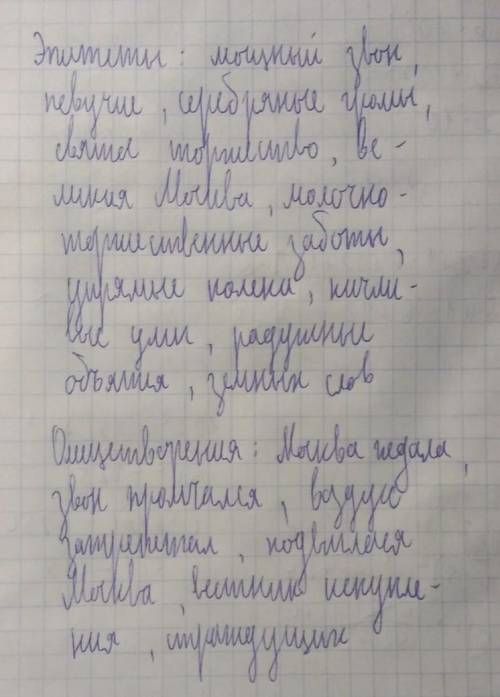 Эпитеты: мощный звон,
певучие, серебряные громы,
святое торжество, ве-
ликая Москва, молочно-
торжественные заботы,
упрямые колени, кичли-
вые умы, радушные
объятия, земных слов
Олицетворения: Москва ждала,
звон промчался, воздух
затрепетал, подвиглася
Москва, вестник искупле-
ния, страждущих